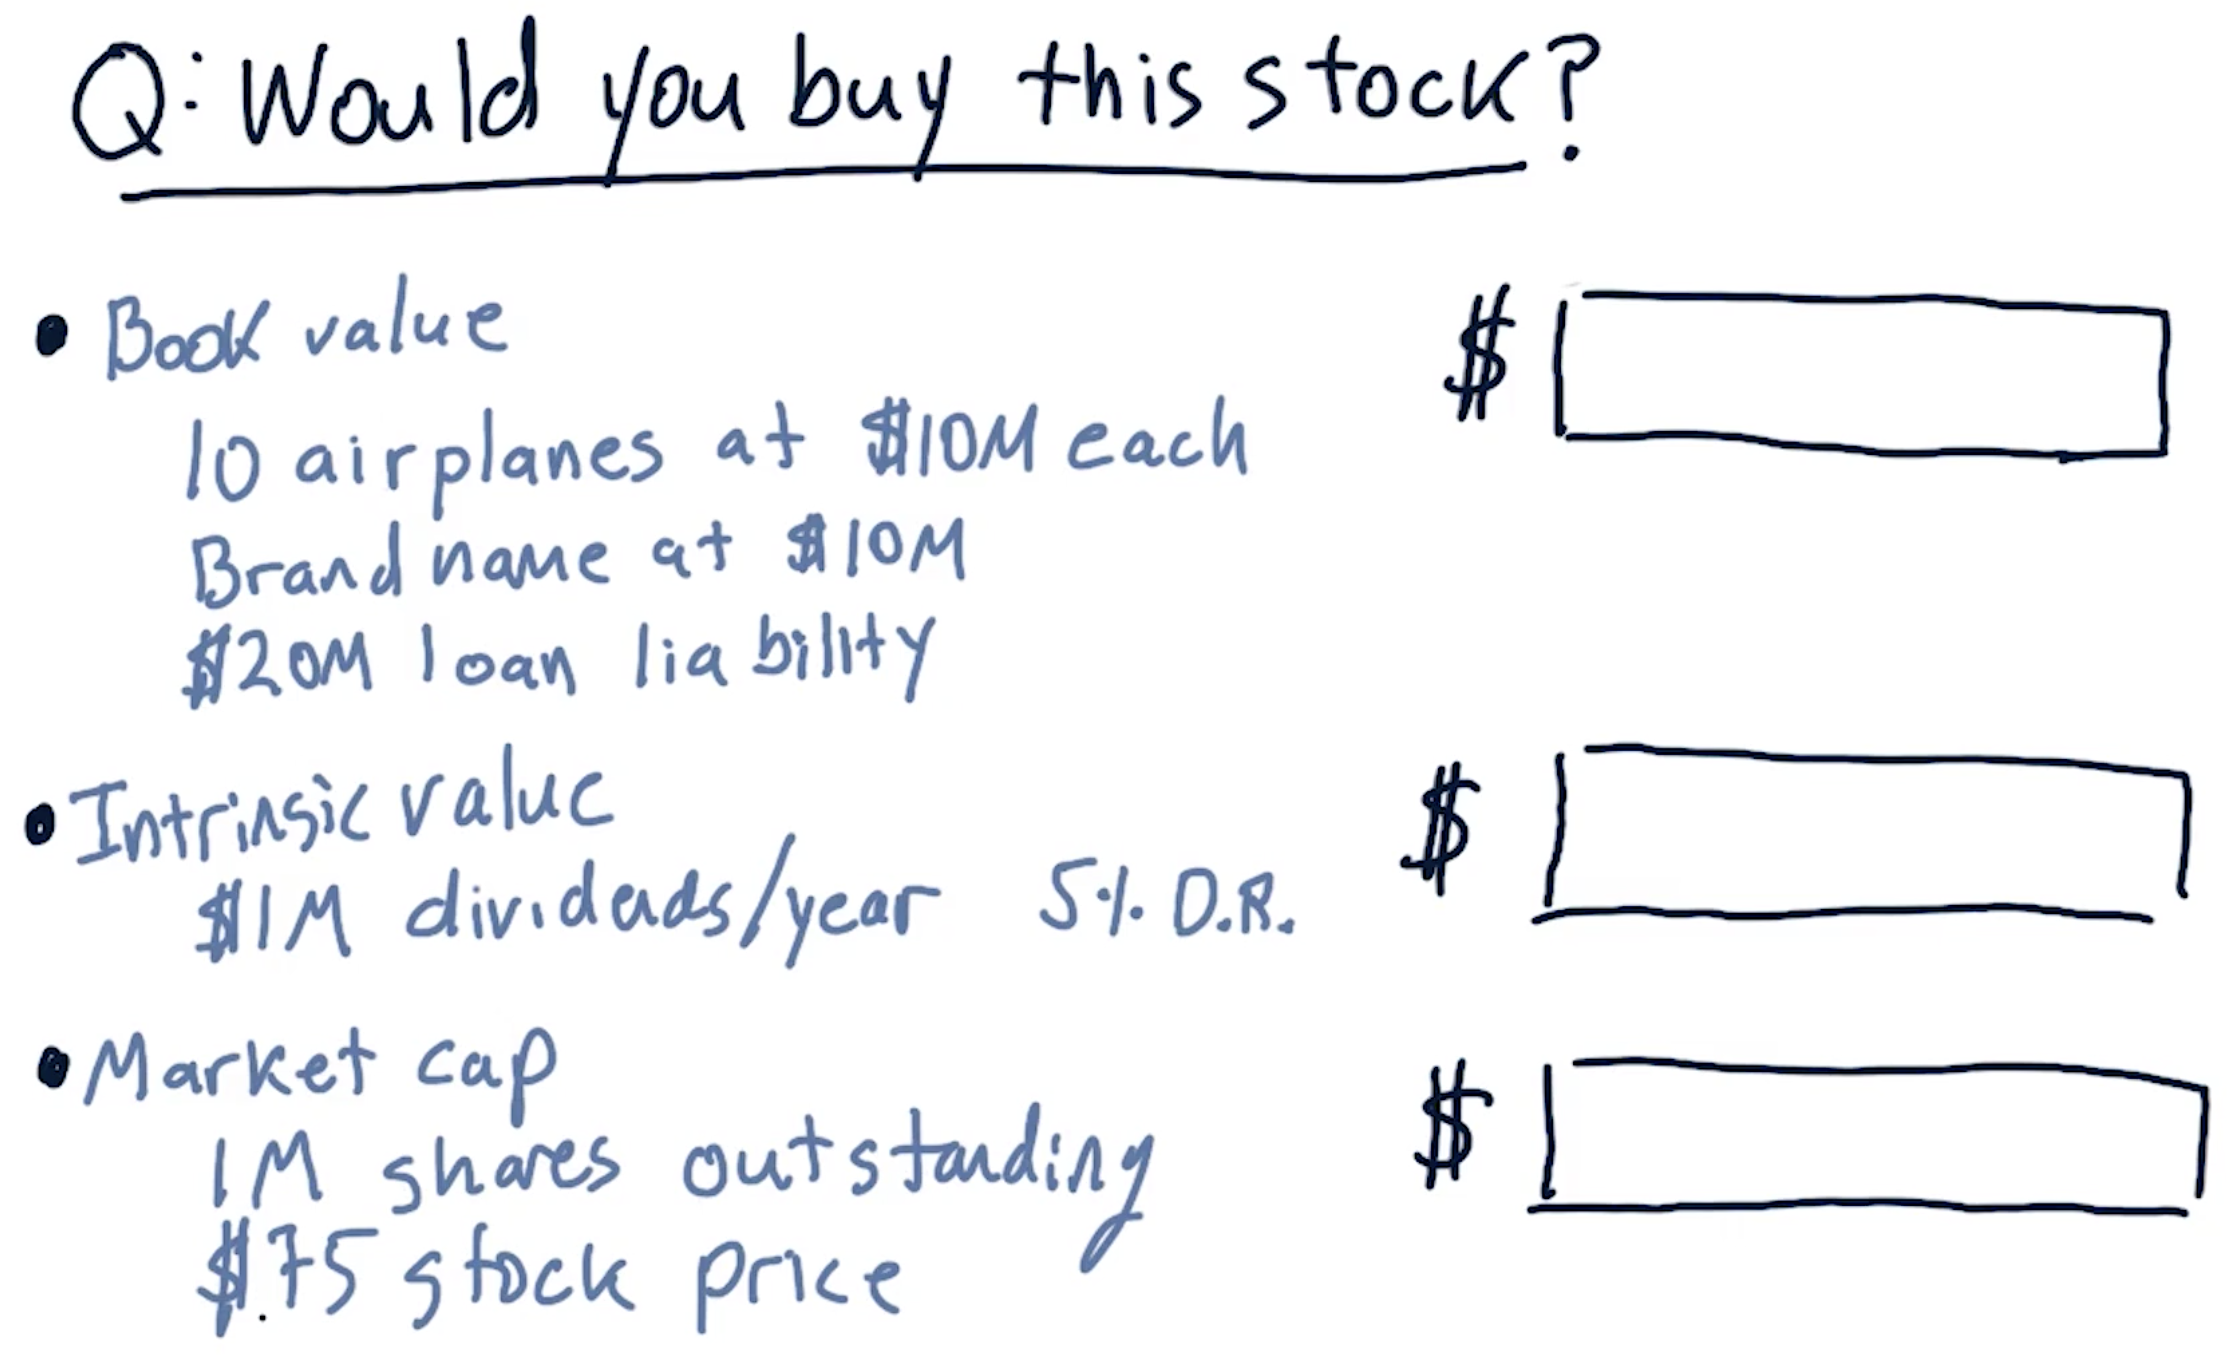 Q: Would you buy this stock?
• Book value $
10 airplanes at $10M each
Brand name at $10M
$20M loan liability
• Intrinsic value $
$1M dividends/year 5% D.R.
• Market cap $
1M shares outstanding
$75 stock price